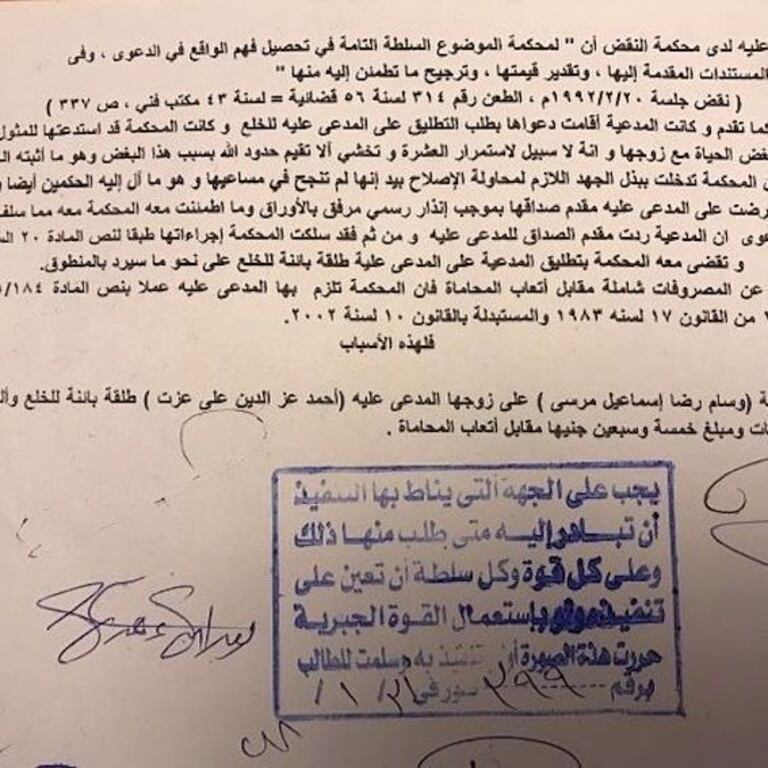 عليه لدى محكمة النقض أن " لمحكمة الموضوع السلطة التامة في تحصيل فهم الواقع في الدعوى ، وفى
المستندات المقدمة إليها ، وتقدير قيمتها ، وترجيح ما تطمئن إليه منها "
( نقض جلسة ١٩٩٢/٢/٢٠م ، الطعن رقم ٣١٤ لسنة ٥٦ قضائية = لسنة ٤٣ مكتب فني ، ص ٣٣٧ )
كما تقدم و كانت المدعية أقامت دعواها بطلب التطليق على المدعى عليه للخلع و كانت المحكمة قد استدعتها للمثول
بغض الحياة مع زوجها و انة لا سبيل لاستمرار العشرة و تخشي ألا تقيم حدود الله بسبب هذا البغض وهو ما أثبته
المحكمة تدخلت ببذل الجهد اللازم لمحاولة الإصلاح بيد إنها لم تنجح في مساعيها و هو ما آل إليه الحكمين أيضا
رضت على المدعى عليه مقدم صداقها بموجب إنذار رسمي مرفق بالأوراق وما اطمئنت معه المحكمة معه مما سلف
عوى ان المدعية ردت مقدم الصداق للمدعى عليه و من ثم فقد سلكت المحكمة إجراءاتها طبقا لنص المادة ٢٠
و تقضى معه المحكمة بتطليق المدعية على المدعى علية طلقة بائنة للخلع على نحو ما سيرد بالمنطوق.
عن المصروفات شاملة مقابل أتعاب المحاماة فان المحكمة تلزم بها المدعى عليه عملا بنص المادة ١٨٤/
من القانون ١٧ لسنه ١٩٨٣ والمستبدلة بالقانون ١٠ لسنة ٢٠٠٢.
فلهذه الأسباب
ة (وسام رضا إسماعيل مرسى ) على زوجها المدعى عليه (أحمد عز الدين علي عزت ) طلقة بائنة للخلع وأل
ات ومبلغ خمسة وسبعين جنيها مقابل أتعاب المحاماة .
يجب على الجهة التى يناط بها التنفيذ
أن تبادر إليه متى طلب منها ذلك
وعلى كل قوة وكل سلطة أن تعين على
تنفيذه ولو بإستعمال القوة الجبرية
حررت هذة الصورة تنفيذ به وسلمت للطالب
برقم ٣٩٩ صور فى ٣١/ ١ /